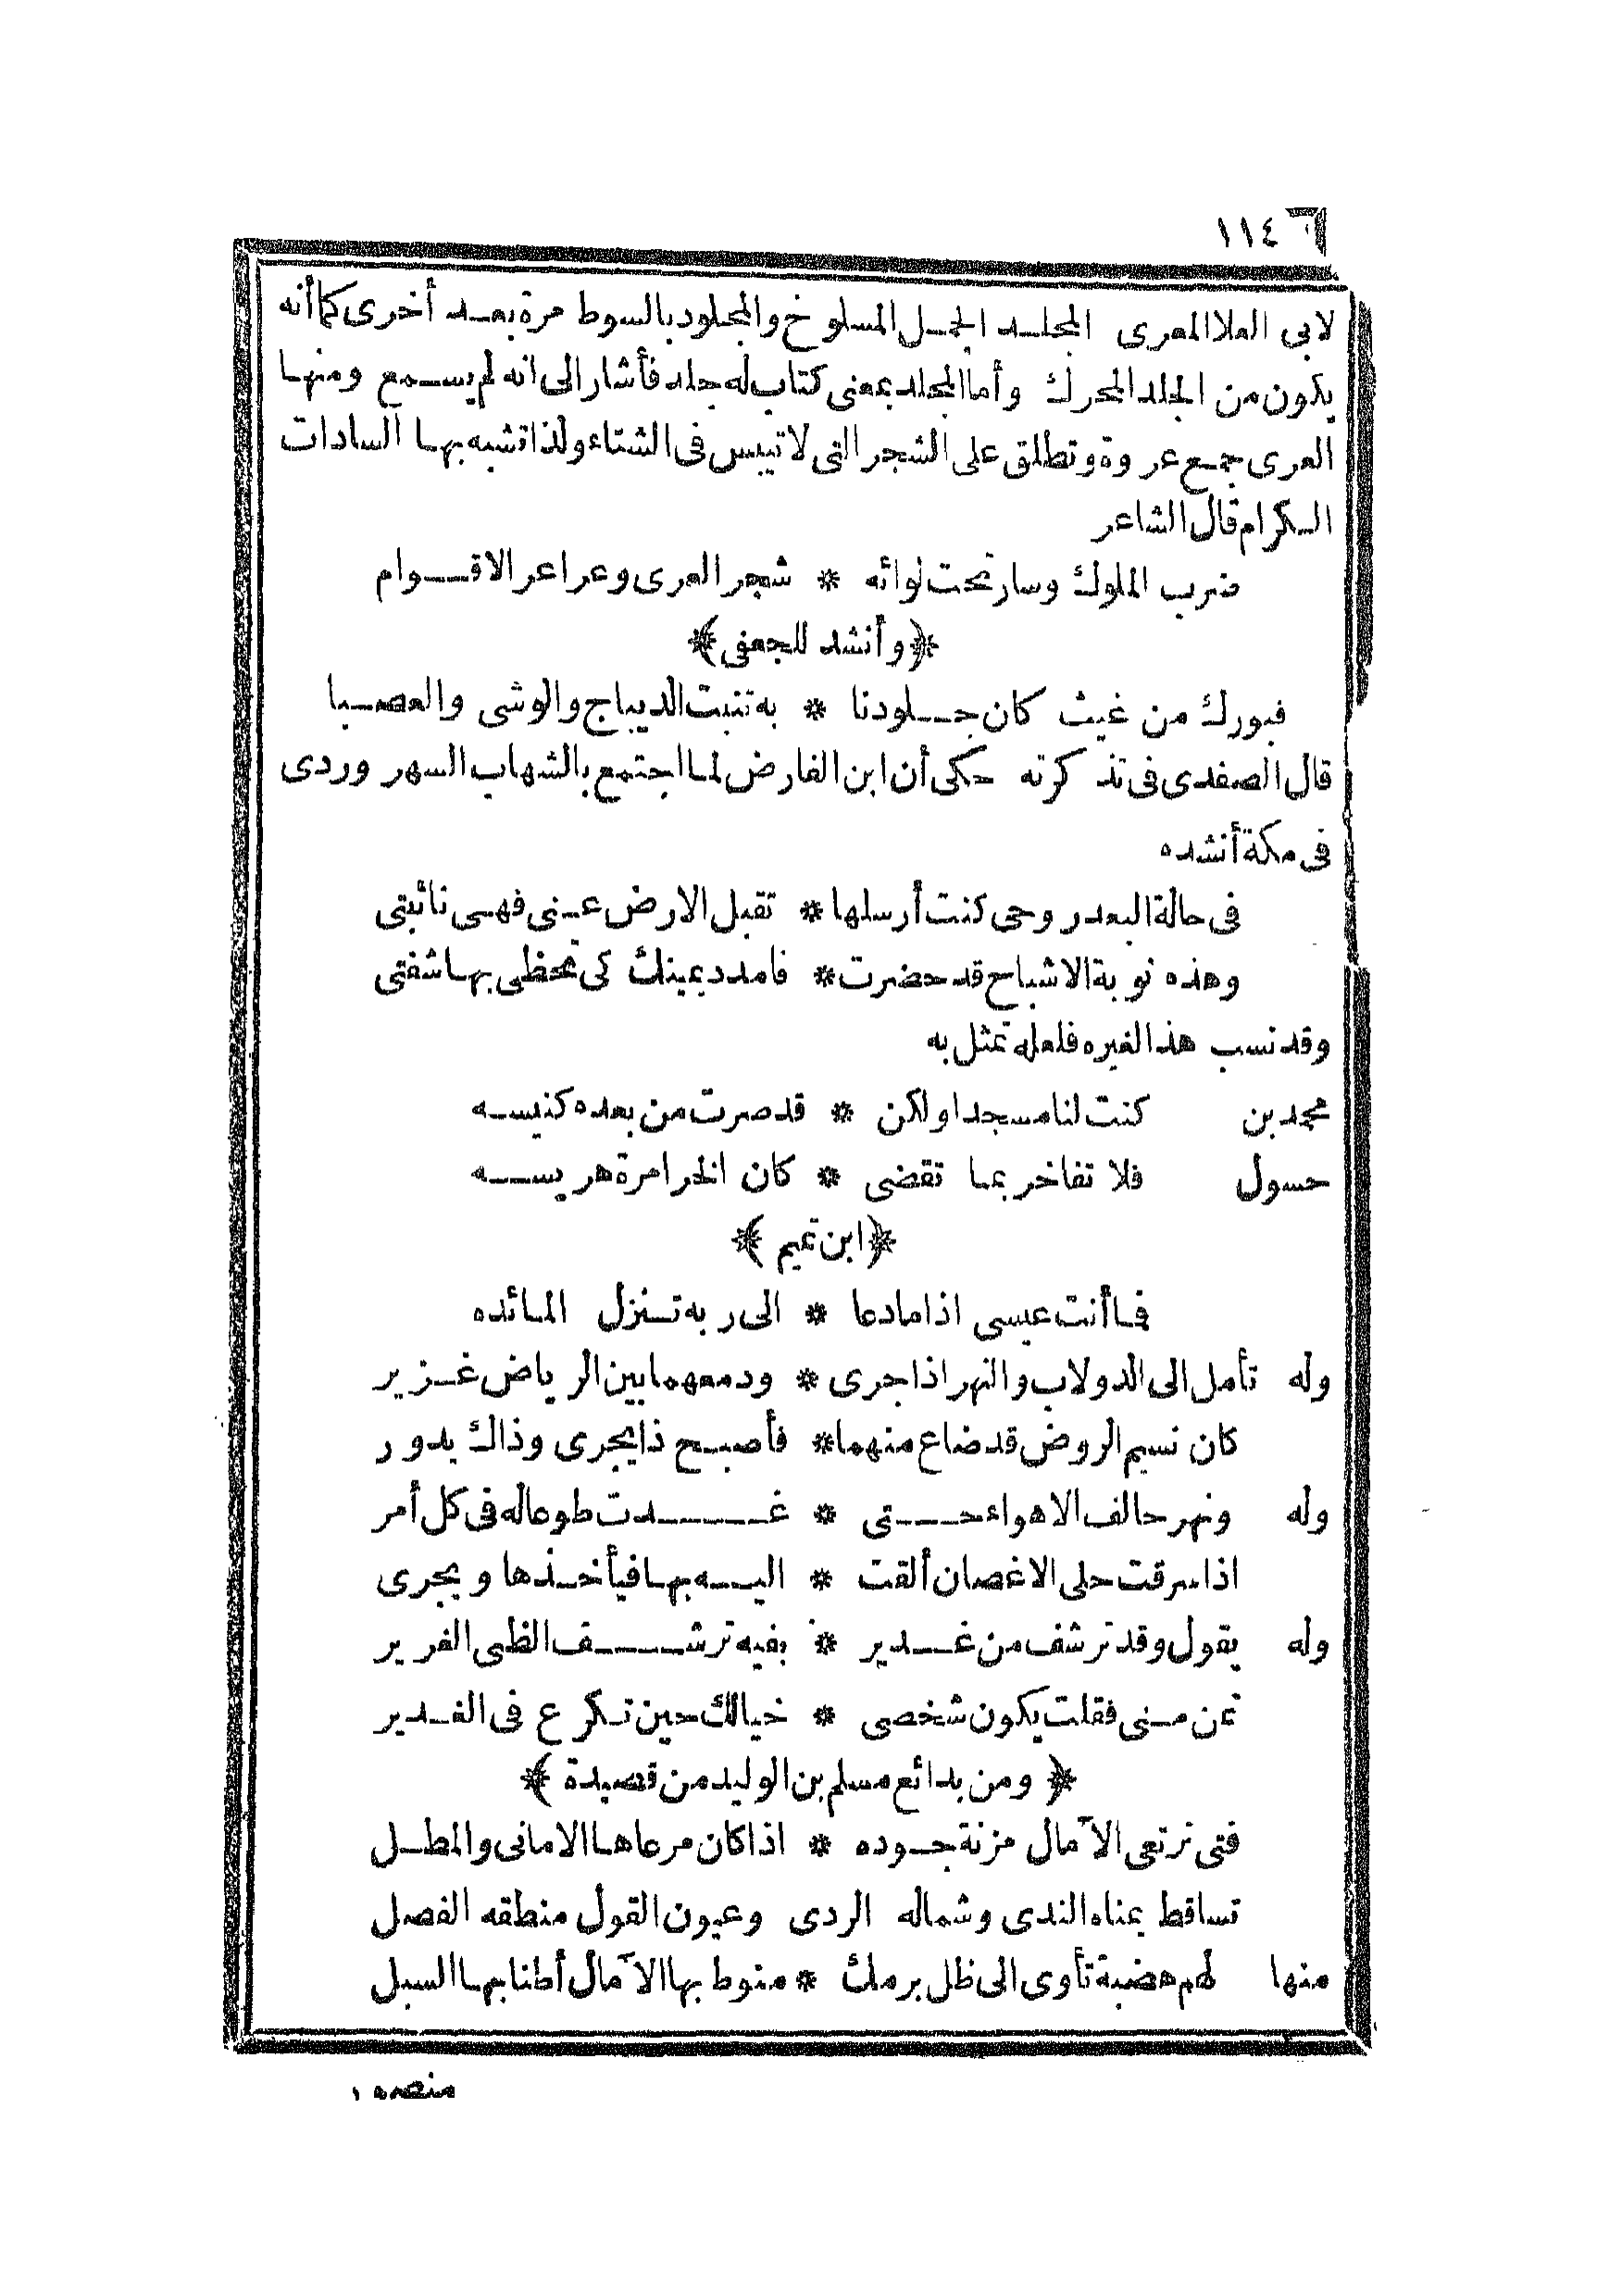 ١١٤
لابى العلا المعرى المجلد الجمل المسلوخ والمجلود بالسوط مرة بعد أخرى كما أنه
يكون من الجلد المحرك وأما المجلد بمعنى كتاب له جلد فأشار الى انه لم يسمع ومنها
العرى جمع عروة وتطلق على الشجر التى لا تيبس فى الشتاء ولذا تشبه بها السادات
الكرام قال الشاعر
ضرب الملوك وسار تحت لوائه * شجر العرى وعراعر الاقوام
﴿وأنشد للجعفى﴾
فبورك من غيث كان جلودنا * به تنبت الديباج والوشى والعصبا
قال الصفدى فى تذكرته حكى أن ابن الفارض لما اجتمع بالشهاب السهروردى
فى مكة أنشده
فى حالة البعد روحى كنت أرسلها * تقبل الارض عنى فهى نائبتى
وهذه نوبة الاشباح قد حضرت * فامدد يمينك كى تحظى بها شفتى
وقد نسب هذا لغيره فلعله تمثل به
محمد بن كنت لنا مسجدا ولكن * قد صرت من بعده كنيسه
حسول فلا تفاخر بما تقضى * كان الخرا مرة هريسه
﴿ابن تميم﴾
فما أنت عيسى اذا ما دعا * الى ربه تستنزل المائده
وله تأمل الى الدولاب والنهر اذا جرى * ودمعهما بين الرياض غزير
كان نسيم الروض قد ضاع منهما * فأصبح ذا يجرى وذاك يدور
وله ونهر حالف الاهواء حتى * غدت طوعا له فى كل أمر
اذا سرقت حلى الاغصان ألقت * اليه بها فيأخذها ويجرى
وله يقول وقد ترشف من غدير * بفيه ترشف الظبى الغرير
تمن منى فقلت يكون شخصى * خيالك حين تكرع فى الغدير
﴿ومن بدائع مسلم بن الوليد من قصيدة﴾
فتى ترتعى الآمال مزنة جوده * اذا كان مرعاها الامانى والمطل
تساقط يمناه الندى وشماله الردى وعيون القول منطقه الفصل
منها لهم هضبة تأوى الى ظل برمك * منوط بها الآمال أطنابها السبل